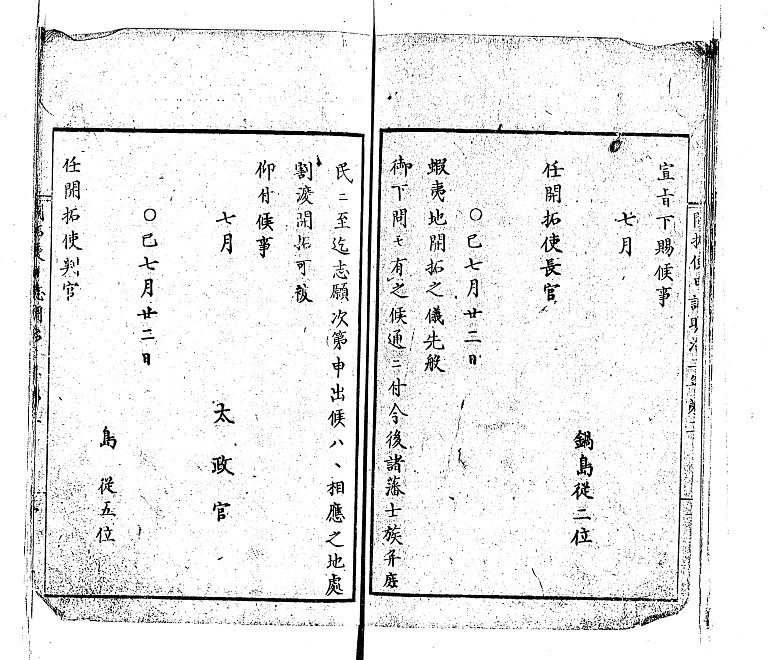 宣旨下賜候事
七月
鍋島従二位
任開拓使長官
○巳七月廿二日
蝦夷地開拓之儀先般
御下問モ有之候通ニ付今後諸藩士族并庶
民ニ至迄志願次第申出候ハヽ相應之地處
割渡開拓可被
仰付候事
七月
太政官
○巳七月廿二日
島従五位
任開拓使判官